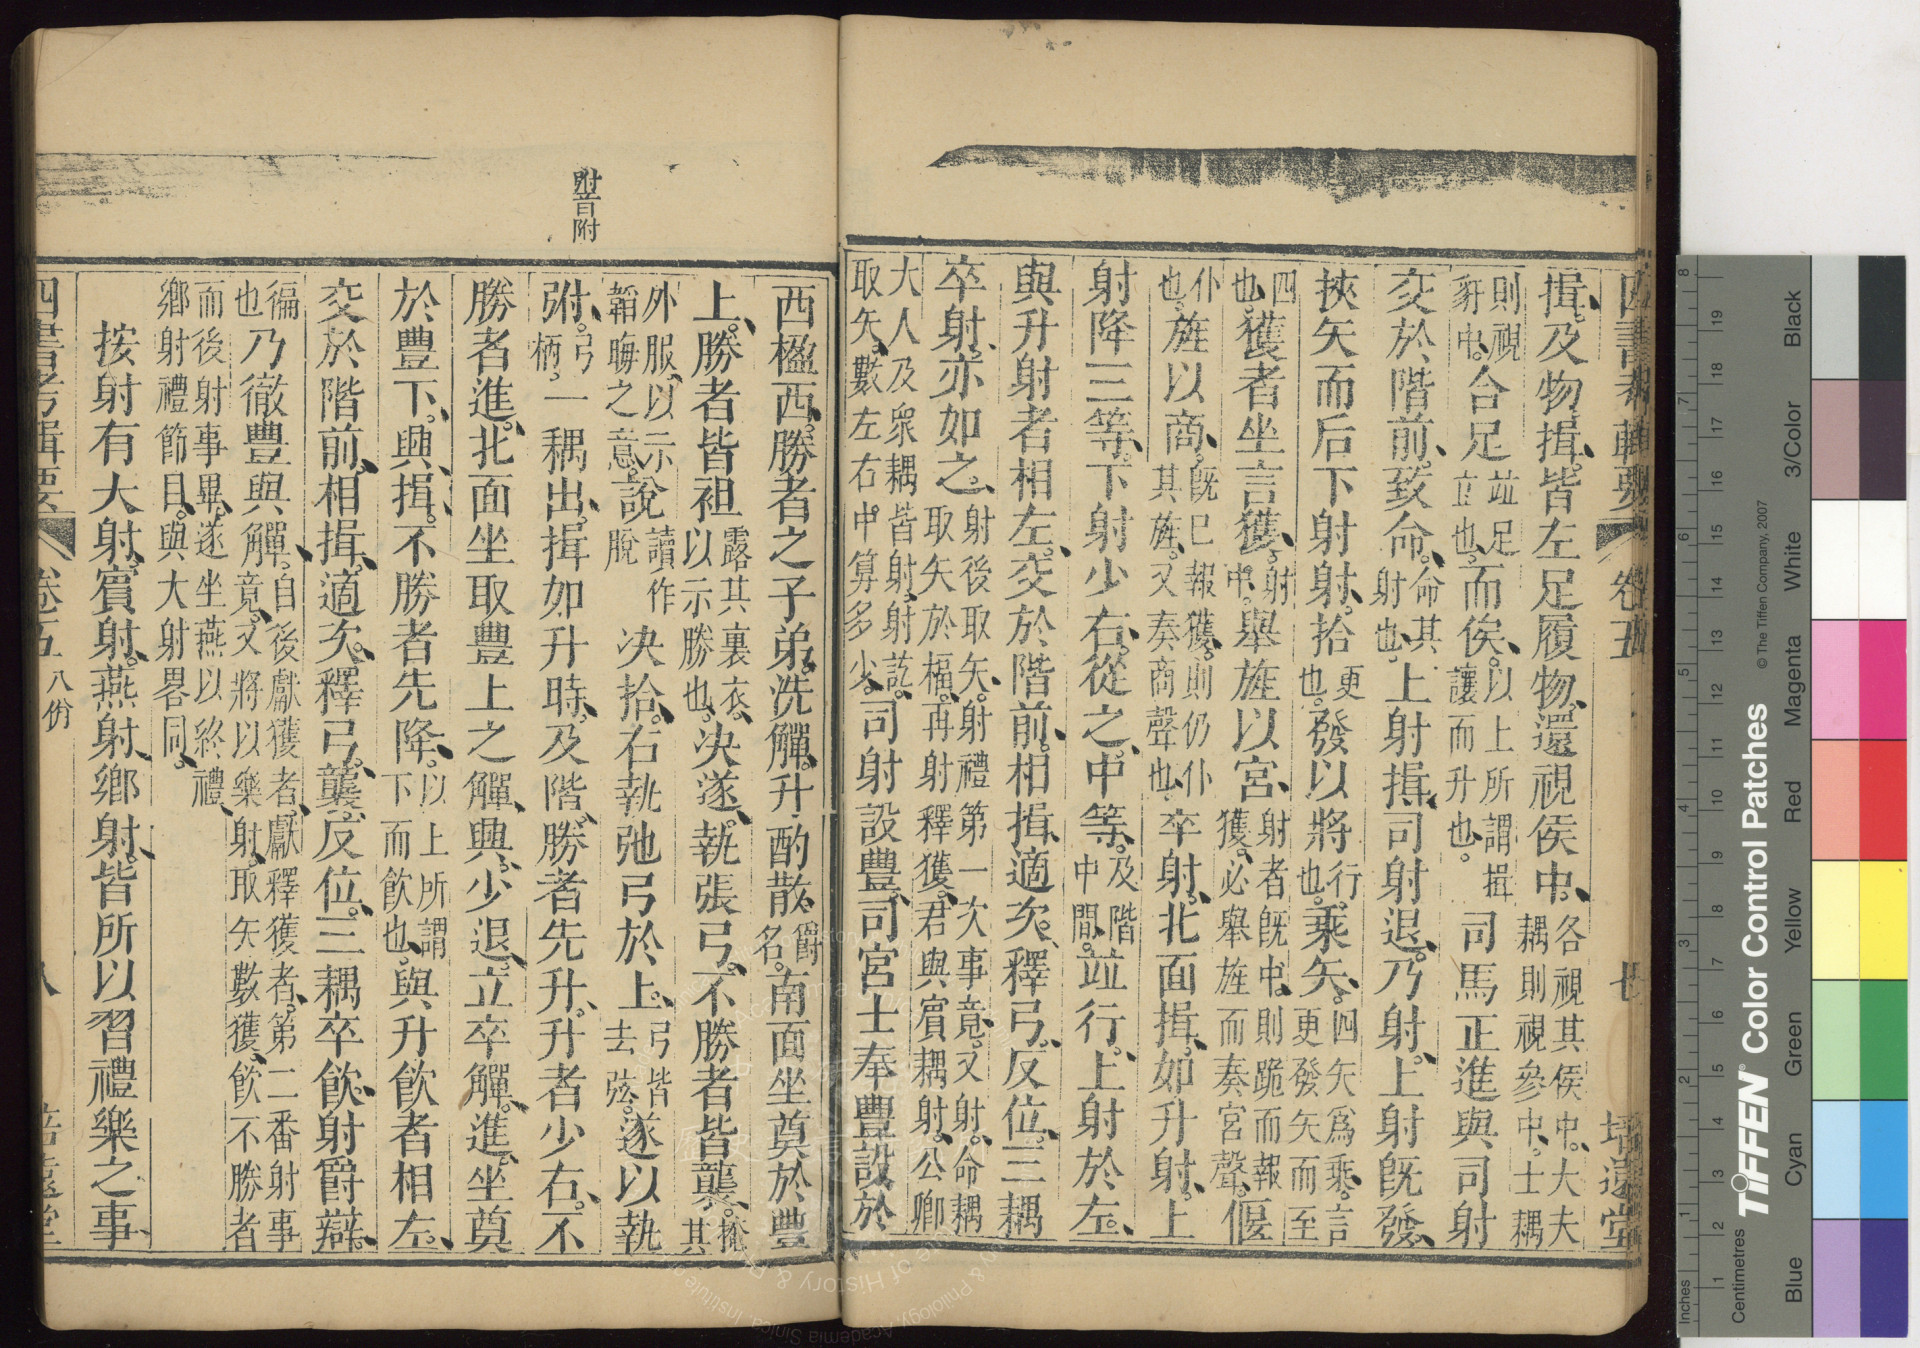 四書考輯要　卷五　七　培遠堂
揖、及物、揖、皆左足履物、還視侯中、各視其侯中。大夫耦則視參中、士耦
則視豻中。合足並足立也。而俟、以上所謂揖讓而升也。司馬正進與司射
交於階前、致命、命其射也、上射揖、司射退、乃射、上射旣發、
挾矢而后下射射、拾更也。發以將行也。乘矢、四矢爲乘。言更發矢而至
四也、獲者坐言獲、射中。舉旌以宮、射者旣中。則跪而報獲、必舉旌而奏宮聲。偃
仆也。旌以商、旣已報獲。則仍仆其旌、又奏商聲也、卒射、北面揖、如升射、上
射降三等、下射少右、從之、中等、及階中間。並行、上射於左、
與升射者相左、交於階前、相揖、適次、釋弓、反位、三耦
卒射、亦如之、射後取矢。射禮第一次事竟、又射。命耦取矢於楅。再射釋獲、君與賓耦射。公卿
大人及衆耦皆射、射訖。取矢、數左右中算多少。司射設豐、司宮士奉豐設於
附音附
西楹西、勝者之子弟、洗觶、升酌散、爵名。南面坐奠於豐
上、勝者皆袒露其裏衣。以示勝也、決遂、執張弓、不勝者皆襲、掩其
外服、以示韜晦之意。說讀作脫決拾、右執弛弓於上。弓皆去弦。遂以執
弣、弓柄、一耦出、揖如升時、及階、勝者先升、升者少右、不
勝者進、北面坐取豐上之觶、興、少退、立卒觶、進、坐奠
於豐下、興、揖、不勝者先降、以上所謂下而飮也。與升飮者相左、
交於階前、相揖、適次、釋弓、襲、反位、三耦卒飮、射爵辯、
徧也乃徹豐與觶、自後獻獲者、獻釋獲者、第二番射事竟。又將以樂射、取矢數獲、飮不勝者
而後射事畢、遂坐燕以終禮、鄉射禮節目、與大射畧同。
按射有大射、賓射、燕射、鄉射、皆所以習禮樂之事、
四書考輯要　卷五　八佾　八　培遠堂
Inches
Centimetres
TIFFEN® Color Control Patches
© The Tiffen Company, 2007
Blue　Cyan　Green　Yellow　Red　Magenta　White　3/Color　Black